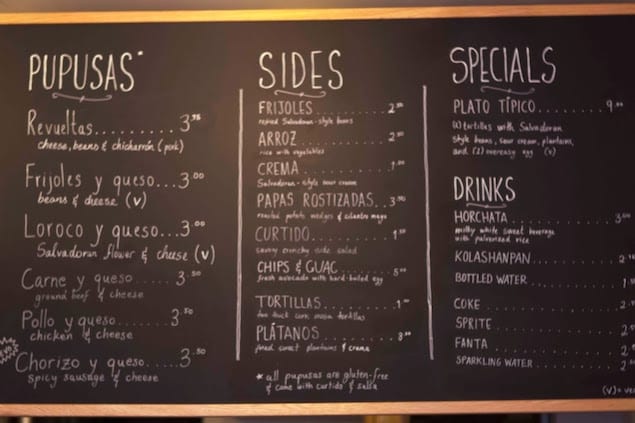 PUPUSAS*
Revueltas.........3.75
cheese, beans & chicharrón (pork)
Frijoles y queso...3.00
beans & cheese (v)
Loroco y queso...3.00
Salvadoran flower & cheese (v)
Carne y queso......3.50
ground beef & cheese
Pollo y queso......3.50
chicken & cheese
Chorizo y queso.....3.50
spicy sausage & cheese
SIDES
FRIJOLES
refried Salvadoran-style beans
ARROZ
rice with vegetables
CREMA
Salvadoran-style sour cream
PAPAS ROSTIZADAS
roasted potato wedges & cilantro mayo
CURTIDO
savory crunchy side salad
CHIPS & GUAC
fresh avocado with hard-boiled egg
TORTILLAS
two thick corn masa tortillas
PLÁTANOS
fried sweet plantains & crema
* all pupusas are gluten-free
& come with curtido & salsa
SPECIALS
PLATO TÍPICO
tortillas with Salvadoran
style beans, sour cream, plantains,
and (1) overeasy egg (v)
DRINKS
HORCHATA
milky white sweet beverage
with pulverized rice
KOLASHANPAN
BOTTLED WATER
COKE
SPRITE
FANTA
SPARKLING WATER